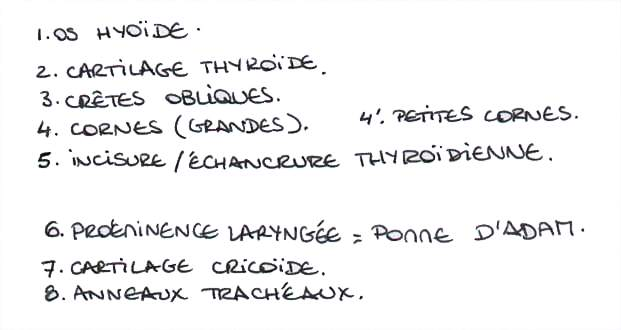 1. OS HYOÏDE.
2. CARTILAGE THYROÏDE.
3. CRÊTES OBLIQUES.
4. CORNES (GRANDES). 4'. PETITES CORNES.
5. INCISURE / ÉCHANCRURE THYROÏDIENNE.
6. PROÉMINENCE LARYNGÉE = POMME D'ADAM.
7. CARTILAGE CRICOÏDE.
8. ANNEAUX TRACHÉAUX.